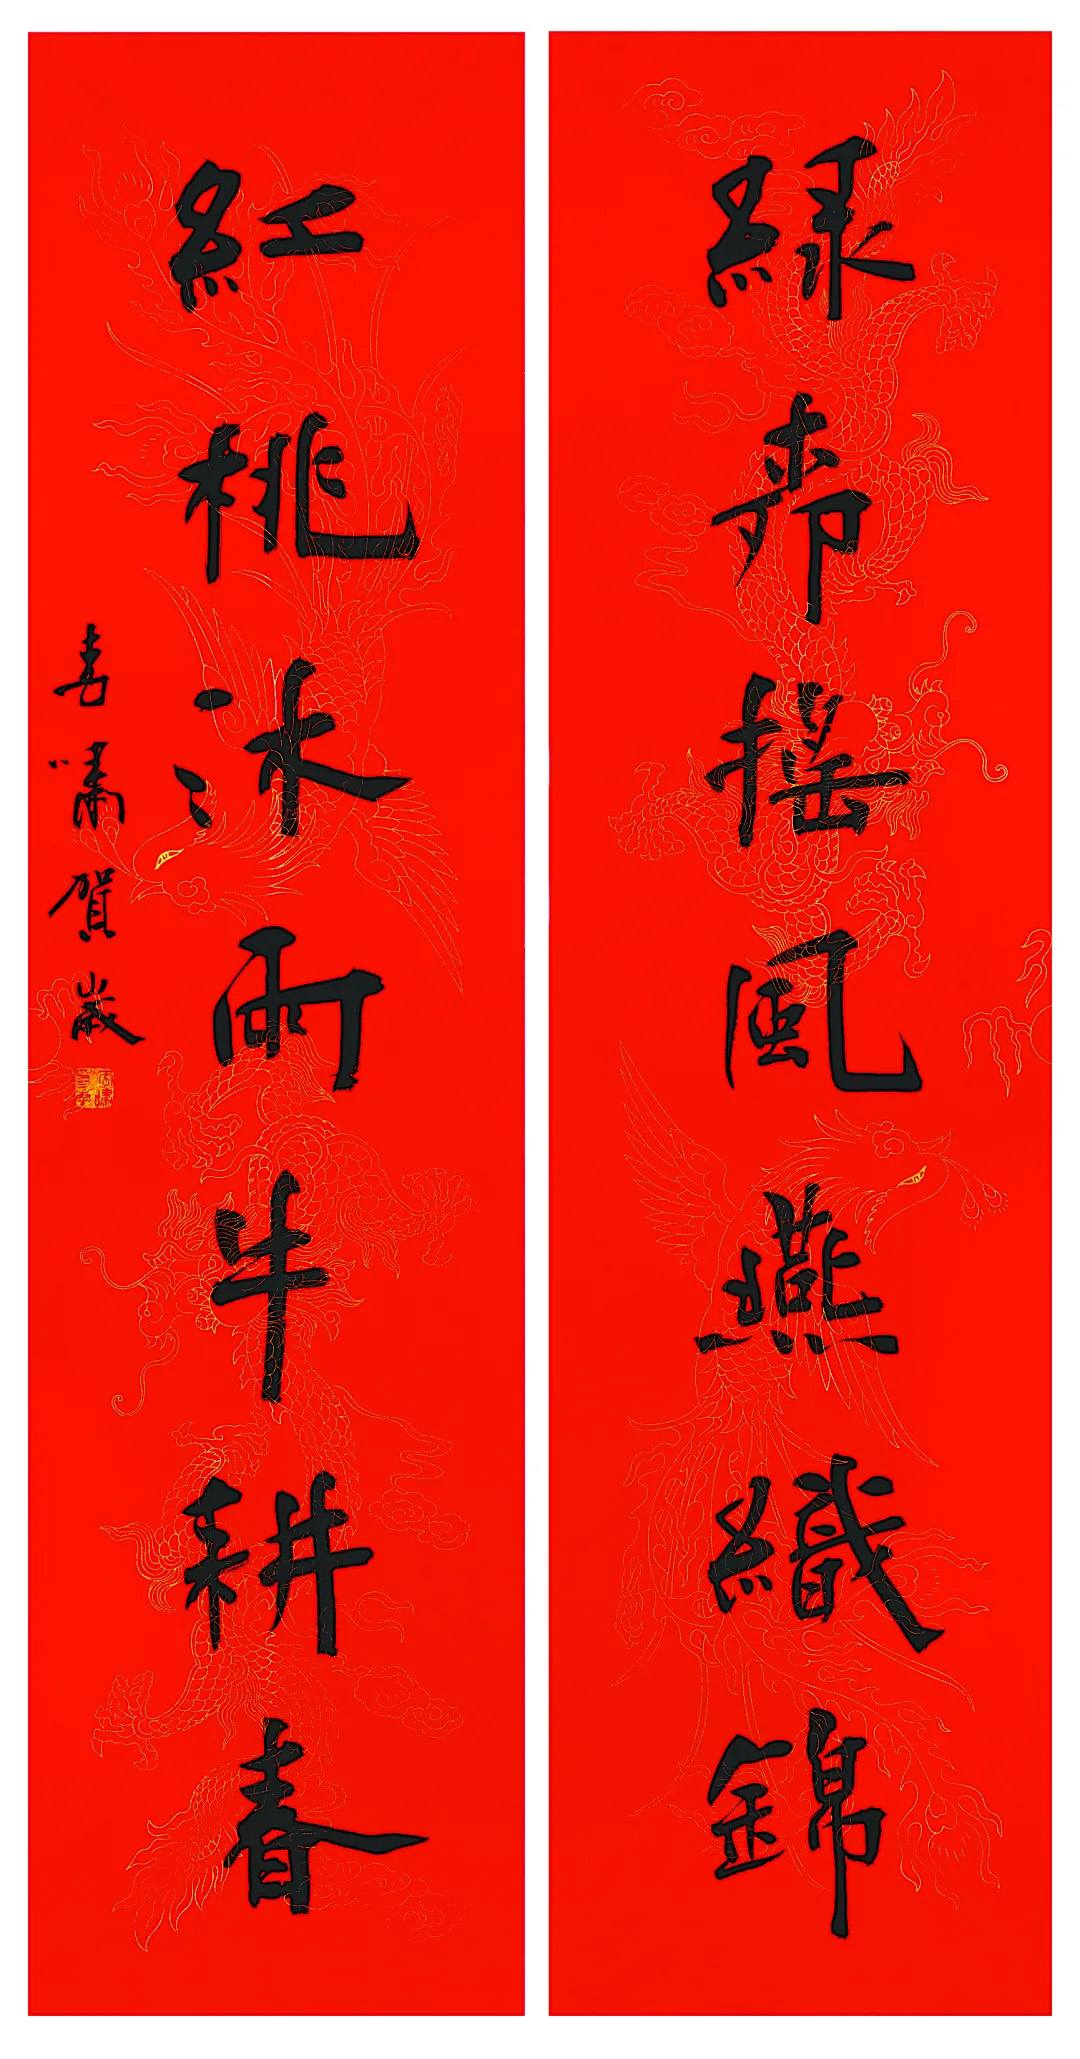 緑柳摇風燕織錦
紅桃沐雨牛耕春
嘯賀歲